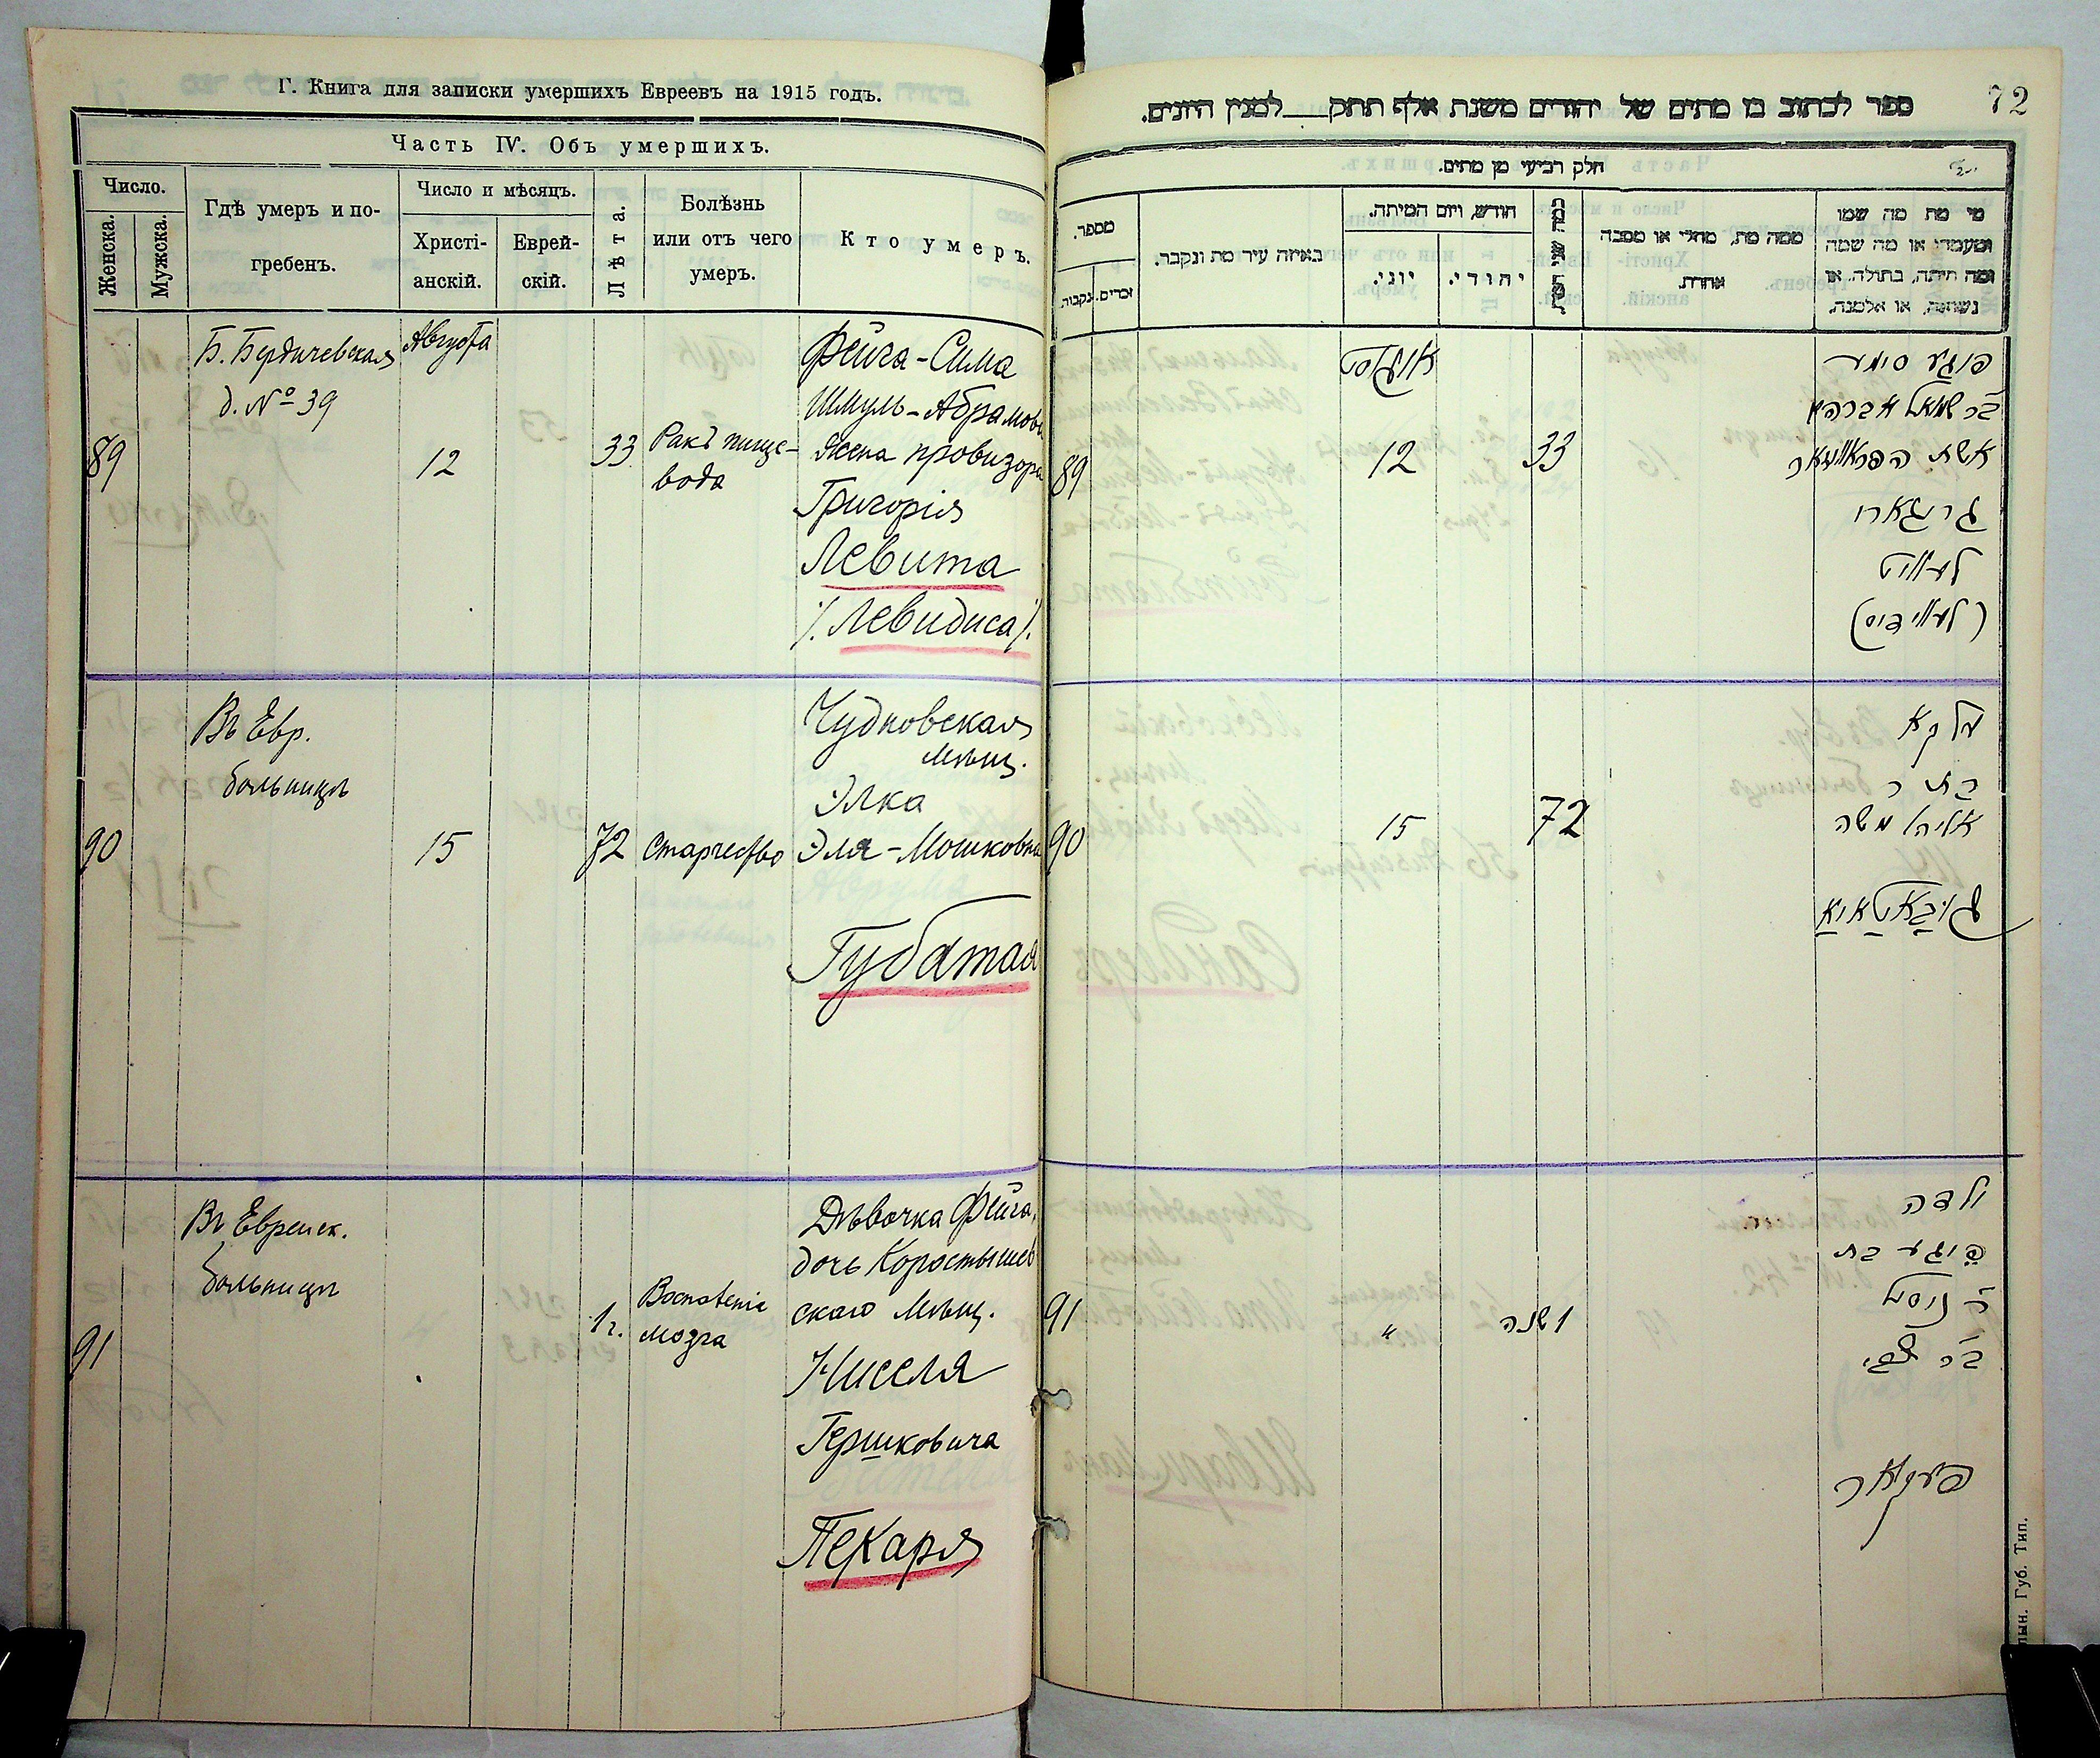 Г. Книга для записки умершихъ Евреевъ на 1915 годъ.
Часть IV. Объ умершихъ.
Число.
Женска.
Мужска.
Гдѣ умеръ и по-
гребенъ.
Число и мѣсяцъ.
Христі-
анскій.
Еврей-
скій.
Лѣта.
Болѣзнь
или отъ чего
умеръ.
Кто умеръ.
89
Б. Бердичевская
д. № 39
Августа
12
33
Ракъ пище-
вода
Фейга-Сима
Шмуль-Абрамовн
жена провизора
Григорія
Левита
/. Левидиса /.
90
Въ Евр.
больницѣ
15
72
Старчество
Чудновская
мѣщ.
Элка
Эля-Мошковна
Губатая
91
Въ Евреиск.
больницѣ
1 г.
Воспаленіе
мозга
Дѣвочка Фейга,
дочь Коростышев
скаго мѣщ.
Ниселя
Гершковича
Пекаря
72
ספר לכתוב בו מתים של יהודים משנת אלף תתק___למנין היונים.
חלק רביעי מן מתים.
מספר.
נקבות.
זכרים.
באיזה עיר מת ונקבר.
חודש, ויום המיתה.
יוני.
יהודי.
ממה מת, מחלי או מסבה
אחרת.
מי מת מה שמו
ומעמדו או מה שמה
ומה היתה, בתולה, או
נשואה, או אלמנה.
89
אויגוסט
12
33
פייגע סימע
בר שמואל אברהם
אשת הפראוויזאר
לעוויט
(לעווידיס)
90
15
72
עלקא
בת ר
אליהו משה
גובאטאיא
91
"
1 שנה
ילדה
פייגע בת
ר' ניסל
בר צבי
פעקאר
лын. Губ. Тип.